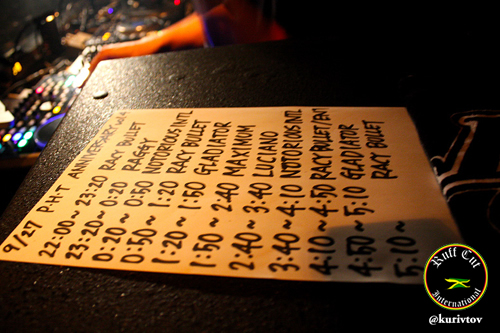 9/27 P.H.T ANNIVERSARY
22:00~23:20 RACY BULLET
23:20~0:20 RAGGY
0:20~0:50 NOTORIOUS INTL
0:50~1:20 RACY BULLET
1:20~1:50 GLADIATOR
1:50~2:40 MAXIMUM
2:40~3:40 LUCIANO
3:40~4:10 NOTORIOUS INTL
4:10~4:50 RACY BULLET
4:50~5:10 GLADIATOR
5:10~ RACY BULLET
Ruff Cut
International
@kurivtov